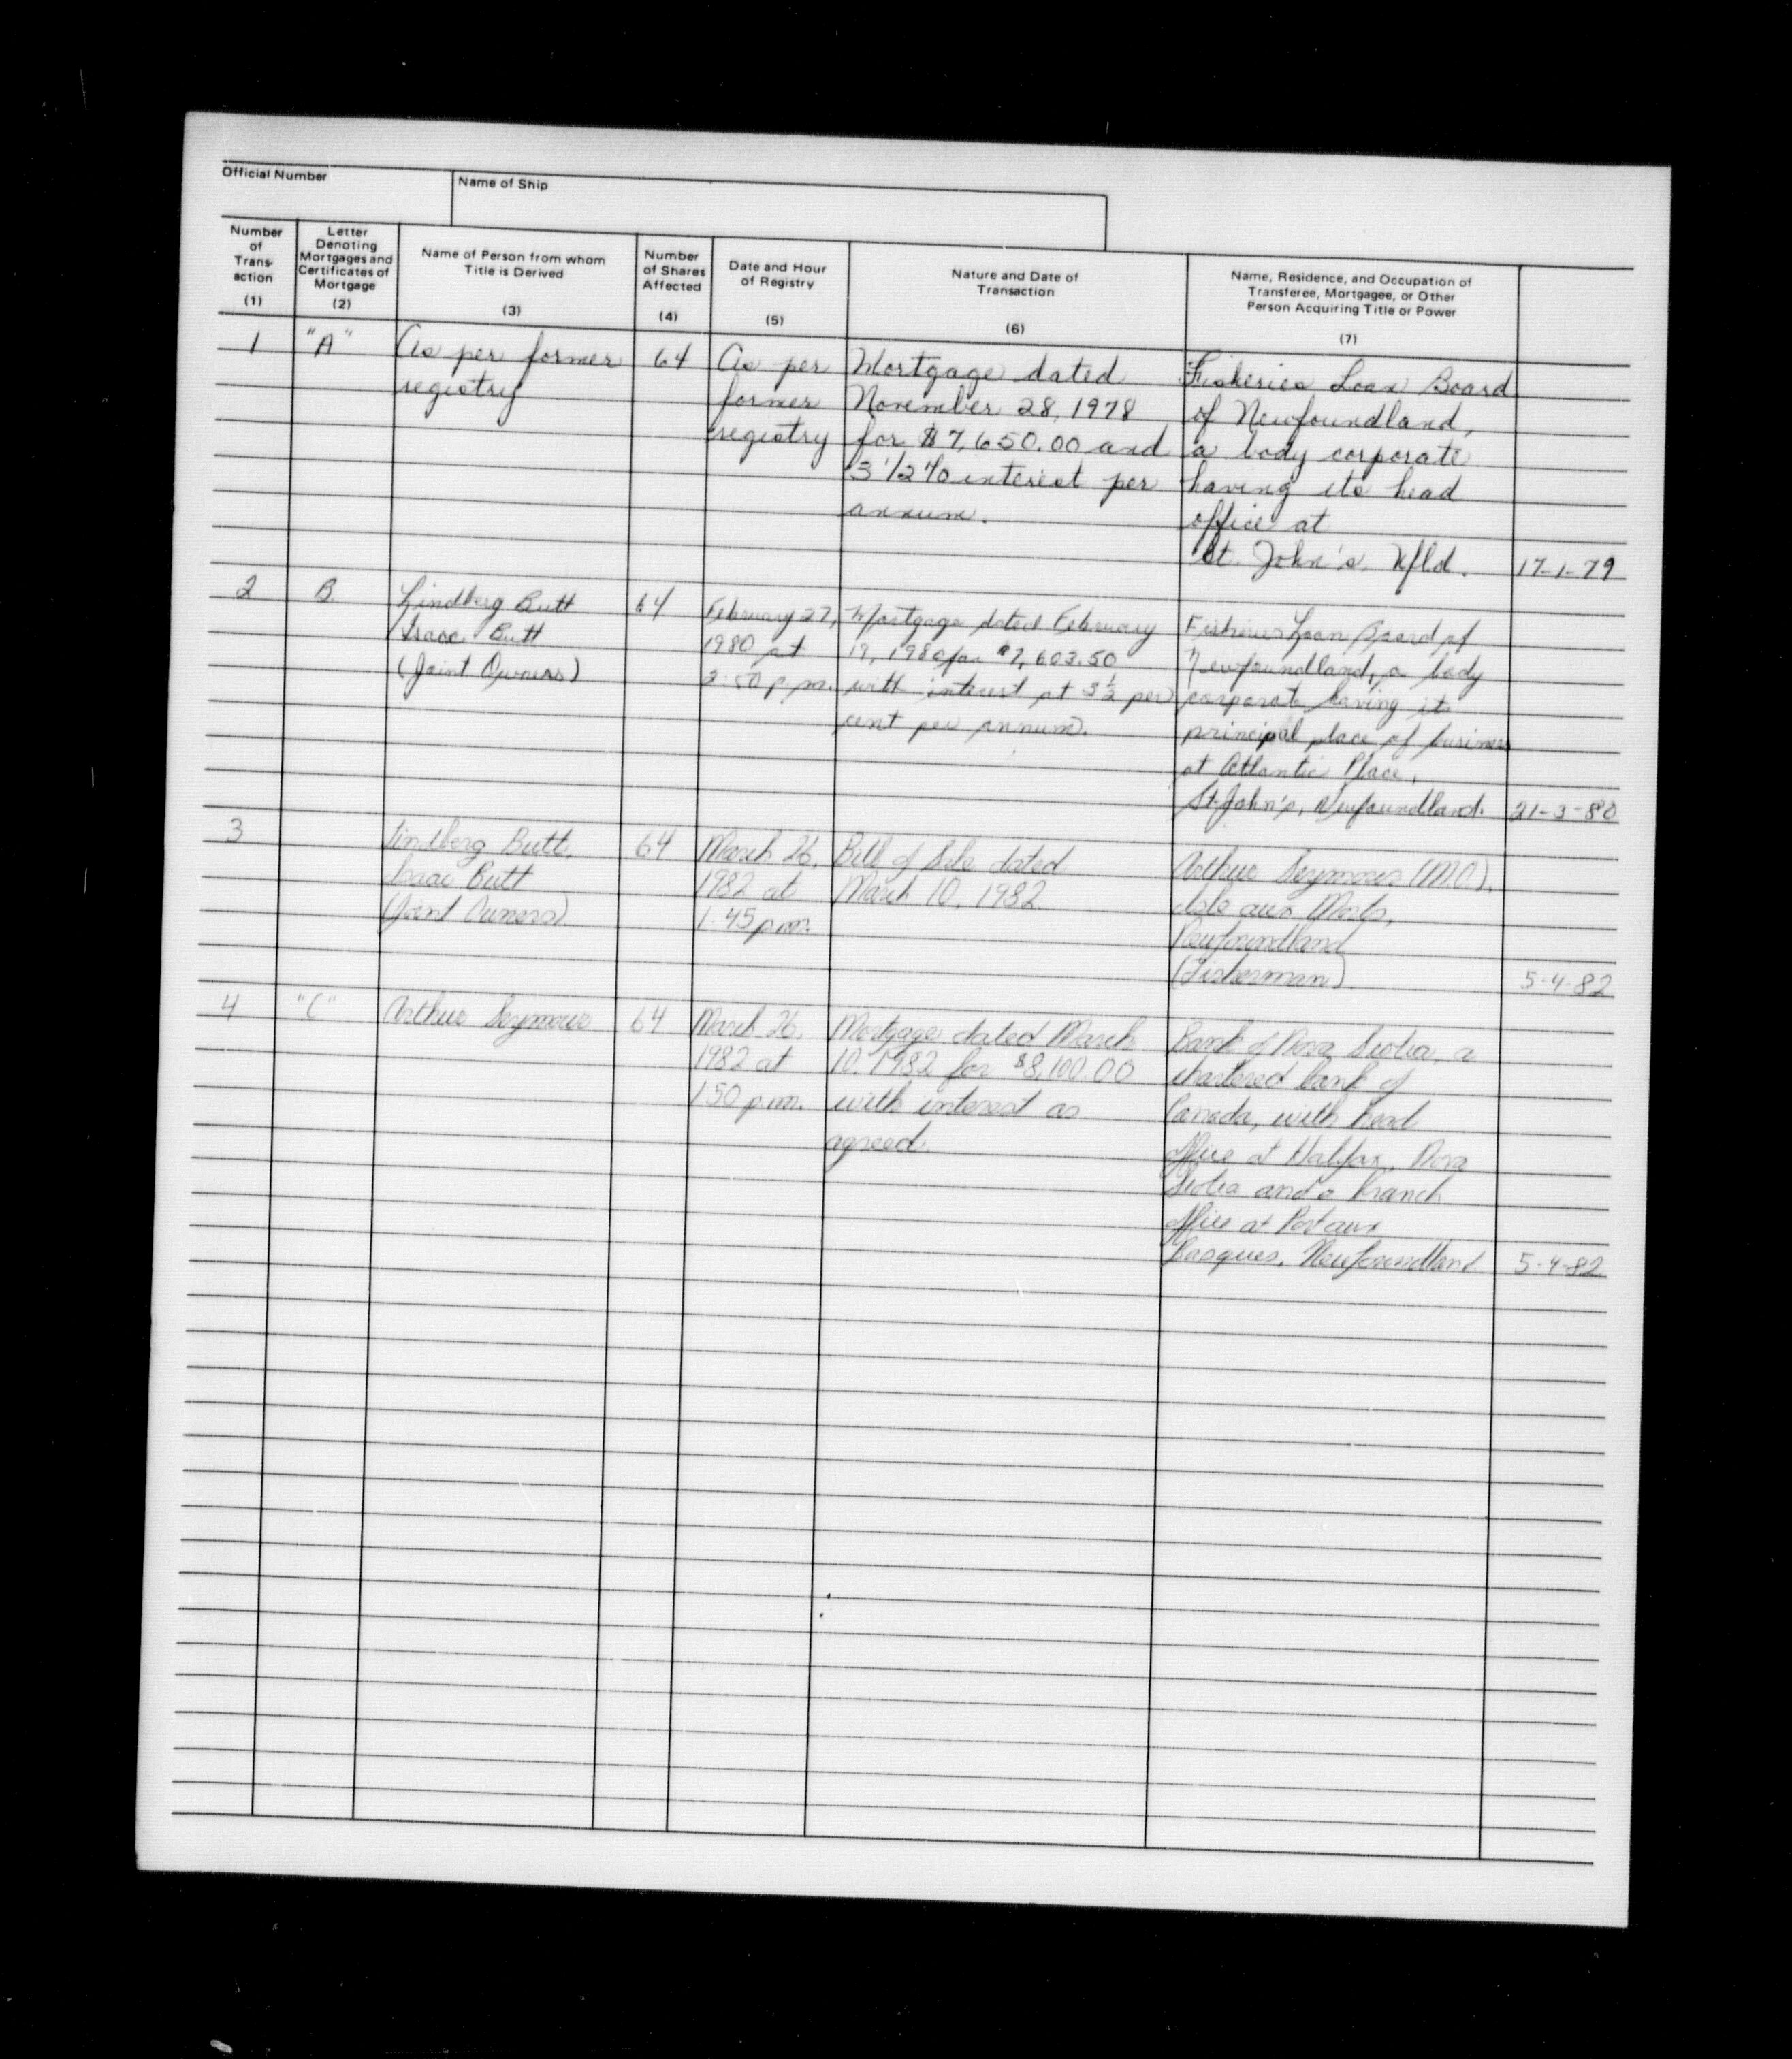 Official Number
Name of Ship
Number
of
Trans-
action
(1)
Letter
Denoting
Mortgages and
Certificates of
Mortgage
(2)
Name of Person from whom
Title is Derived
(3)
Number
of Shares
Affected
(4)
Date and Hour
of Registry
(5)
Nature and Date of
Transaction
(6)
Name, Residence, and Occupation of
Transferee, Mortgagee, or Other
Person Acquiring Title or Power
(7)
1
"A"
As per former
registry
64
As per
former
registry
Mortgage dated
November 28, 1978
for $7,650.00 and
3 1/2% interest per
annum.
Fisheries Loan Board
of Newfoundland,
a body corporate
having its head
office at
St. John's, Nfld.
17-1-79
2
B
Lindberg Butt
Isaac Butt
(Joint Owners)
64
February 27,
1980 at
2:50 p.m.
Mortgage dated February
19, 1980 for $7,603.50
with interest at 3½ per
cent per annum.
Fisheries Loan Board of
Newfoundland, a body
corporate having its
principal place of business
at Atlantic Place,
St. John's, Newfoundland.
21-3-80
3
Lindberg Butt,
Isaac Butt
(Joint Owners)
64
March 26,
1982 at
1:45 p.m.
Bill of Sale dated
March 10, 1982
Arthur Seymour (M.O.),
Isle aux Morts,
Newfoundland
(Fisherman)
5-4-82
4
"C"
Arthur Seymour
64
March 26,
1982 at
1:50 p.m.
Mortgage dated March
10, 1982 for $8,100.00
with interest as
agreed.
Bank of Nova Scotia, a
chartered bank of
Canada, with head
office at Halifax, Nova
Scotia and a branch
office at Port aux
Basques, Newfoundland
5-4-82